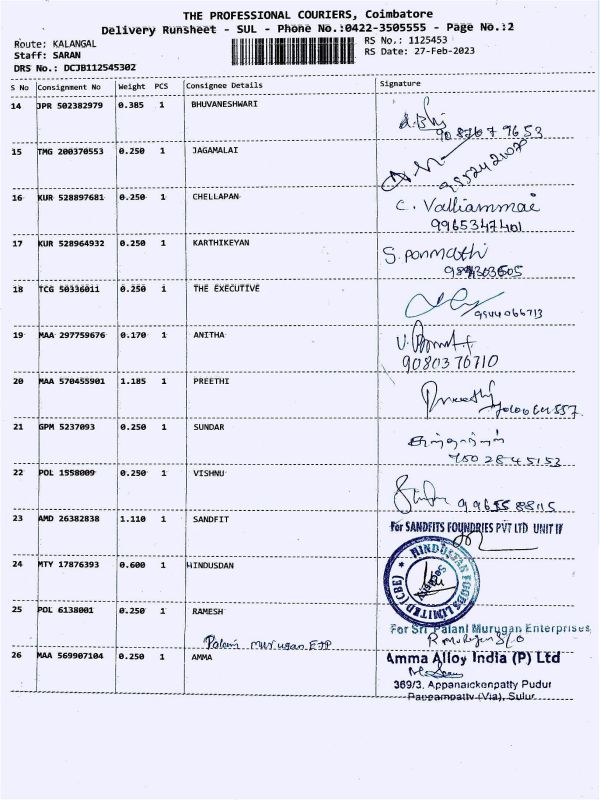 THE PROFESSIONAL COURIERS, Coimbatore
Delivery Runsheet - SUL - Phone No.:0422-3505555 - Page No.:2
Route: KALANGAL
RS No.: 1125453
Staff: SARAN
RS Date: 27-Feb-2023
DRS No.: DCJB112545302
S No Consignment No Weight PCS Consignee Details Signature
14 JPR 502382979 0.385 1 BHUVANESHWARI
15 TMG 200370553 0.250 1 JAGAMALAI
16 KUR 528897681 0.250 1 CHELLAPAN C. Valliammai
9965347401
17 KUR 528964932 0.250 1 KARTHIKEYAN S. Ponmathi
18 TCG 50336011 0.250 1 THE EXECUTIVE
9544066713
19 MAA 297759676 0.170 1 ANITHA
9080376710
20 MAA 570455901 1.185 1 PREETHI Preethi
21 GPM 5237093 0.250 1 SUNDAR
7502845153
22 POL 1558009 0.250 1 VISHNU
23 AMD 26382838 1.110 1 SANDFIT For SANDFITS FOUNDRIES PVT LTD UNIT IV
24 MTY 17876393 0.600 1 HINDUSDAN HINDUSTAN FOODS LIMITED (CBE)
25 POL 6138001 0.250 1 RAMESH For Sri Palani Murugan Enterprises
Palani murugan ETP
26 MAA 569907104 0.250 1 AMMA Amma Alloy India (P) Ltd
369/3, Appanaickenpatty Pudur
Pappampatty (Via), Sulur